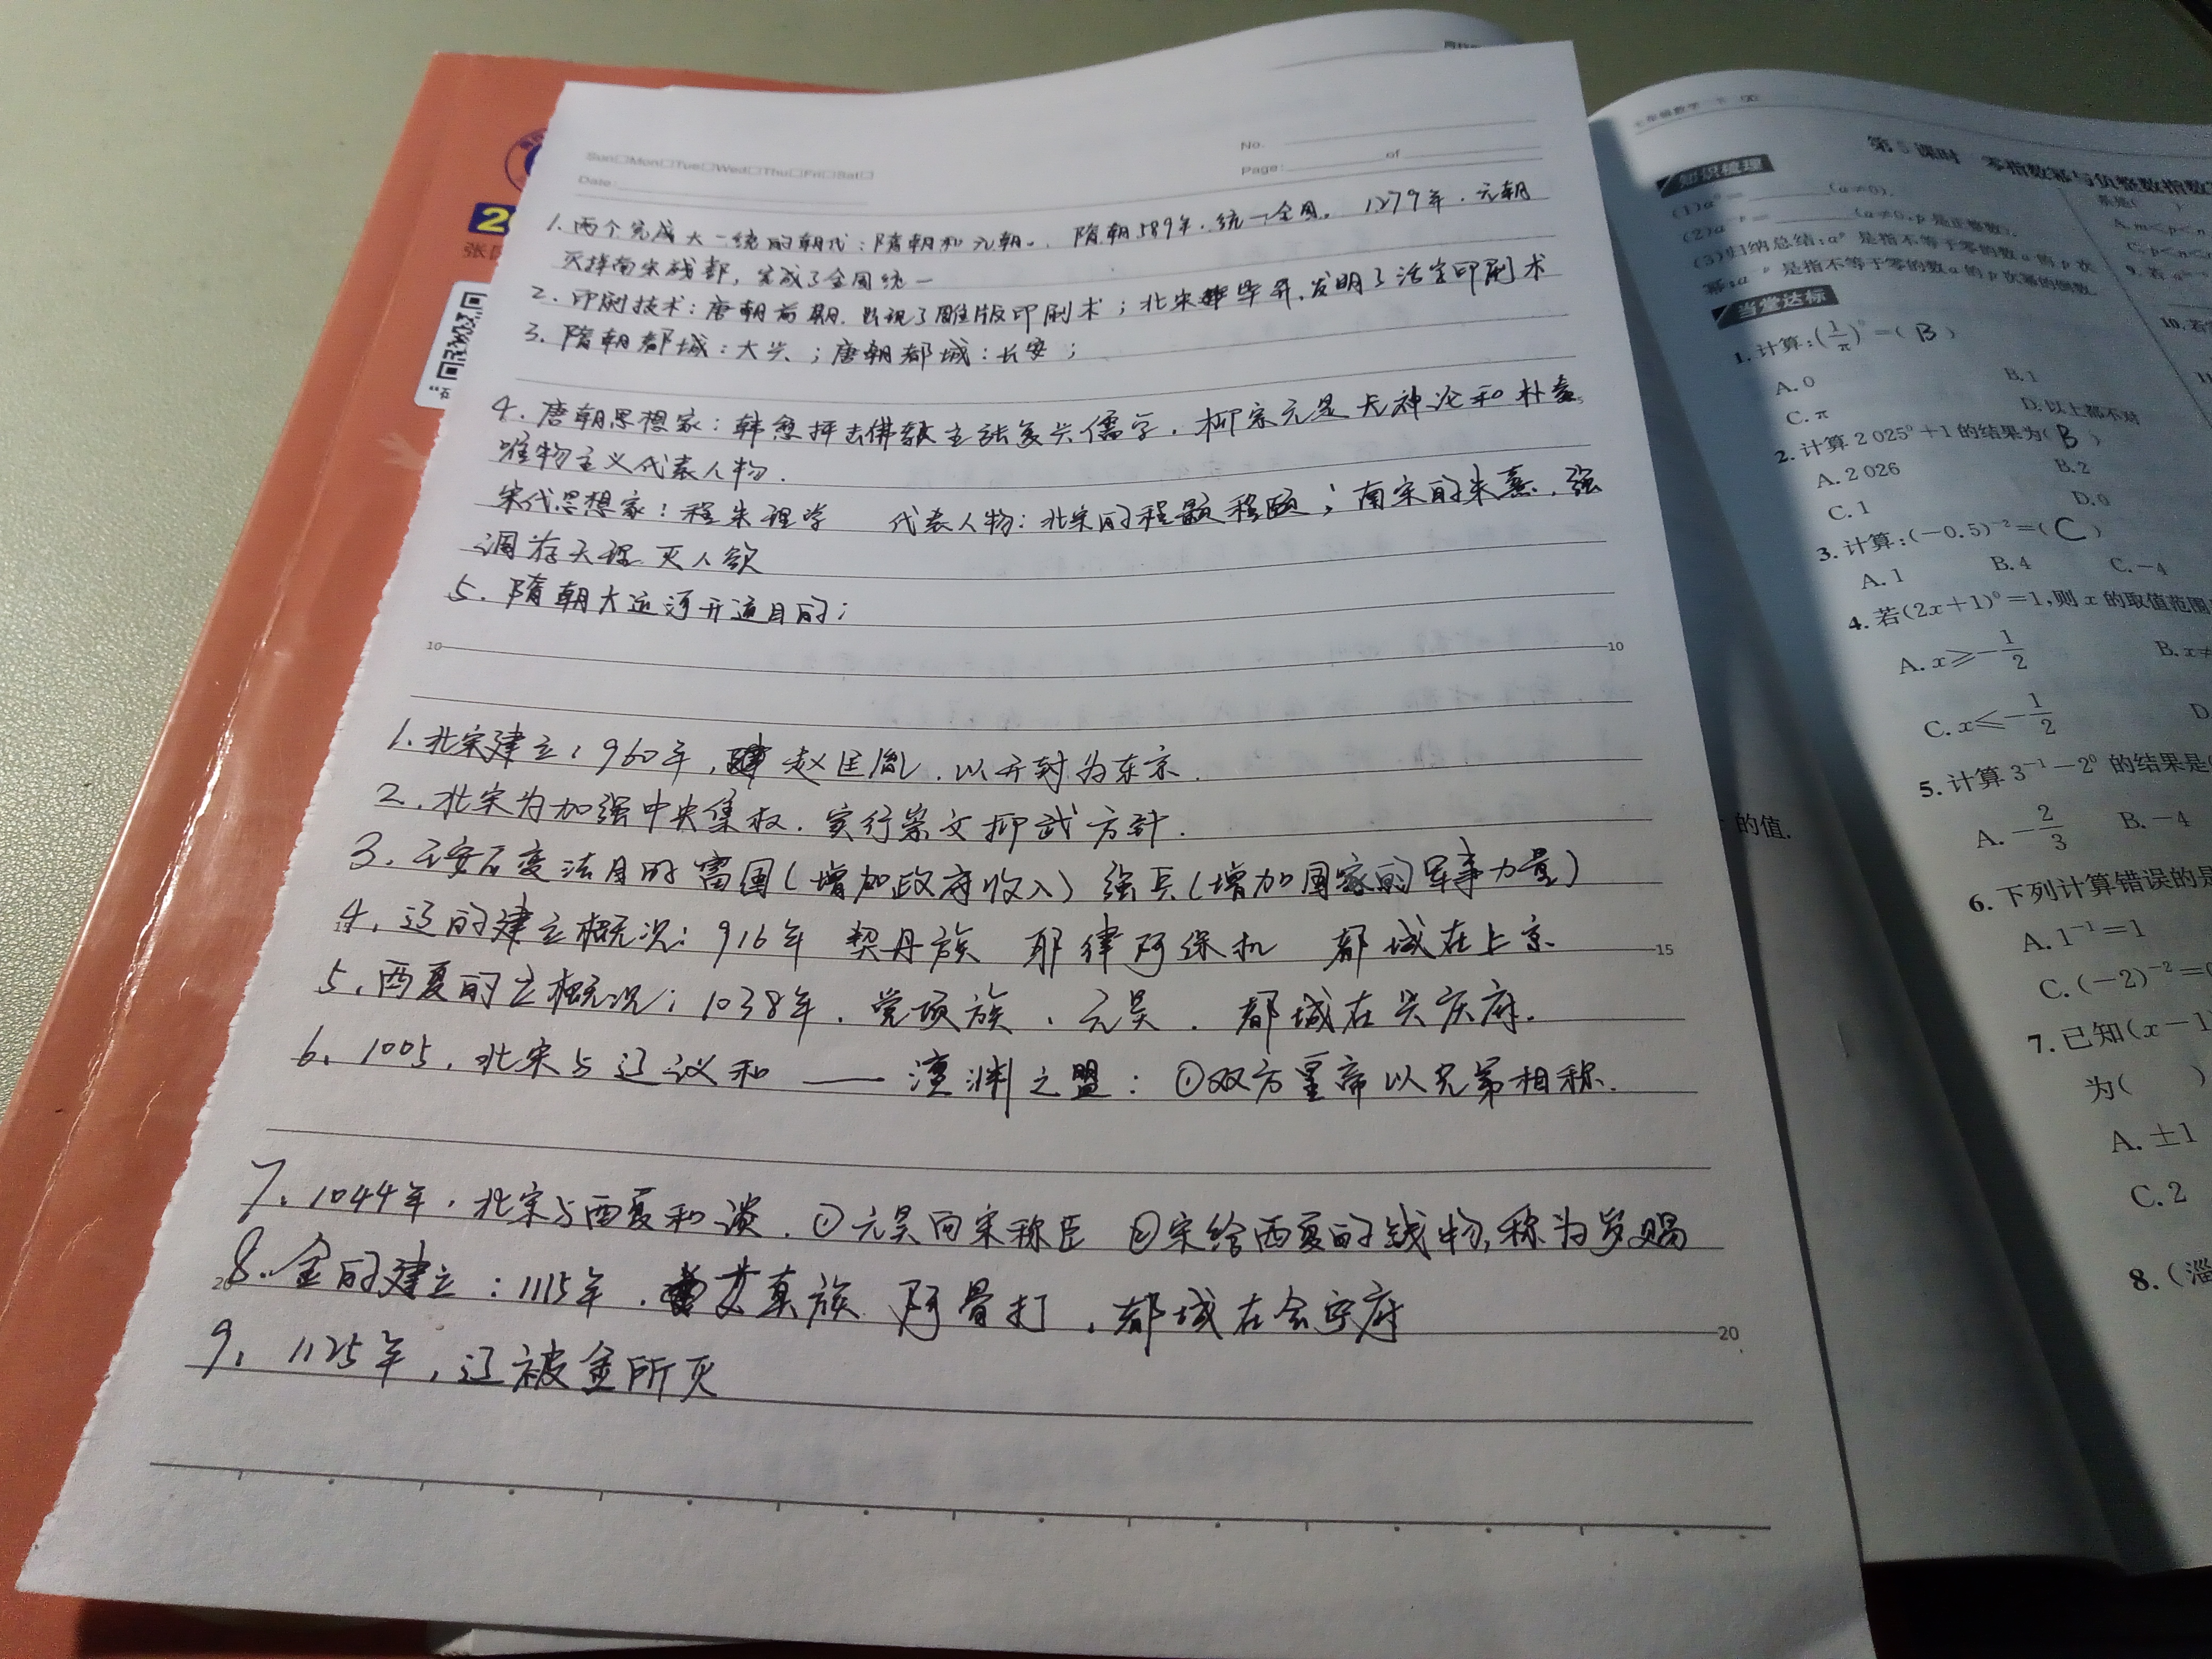 Sun□Mon□Tue□Wed□Thu□Fri□Sat□
Date:
No.
Page: of
1.两个完成大一统的朝代:隋朝和元朝。隋朝589年.统一全国。1279年.元朝
灭掉南宋残部,完成了全国统一
2.印刷技术:唐朝前期.出现了雕版印刷术;北宋毕昇.发明了活字印刷术
3.隋朝都城:大兴;唐朝都城:长安;
4.唐朝思想家:韩愈抨击佛教主张复兴儒学.柳宗元是无神论和朴素
唯物主义代表人物.
宋代思想家:程朱理学 代表人物:北宋的程颢程颐;南宋的朱熹.强
调存天理灭人欲
5.隋朝大运河开通目的:
10 10
1.北宋建立:960年,赵匡胤.以开封为东京.
2.北宋为加强中央集权.实行崇文抑武方针.
3.王安石变法目的富国(增加政府收入)强兵(增加国家的军事力量)
4.辽的建立概况:916年 契丹族 耶律阿保机 都城在上京
15
5.西夏的立概况:1038年.党项族.元昊.都城在兴庆府.
6.1005.北宋与辽议和——澶渊之盟:①双方皇帝以兄弟相称.
7.1044年.北宋与西夏和谈.①元昊向宋称臣 ②宋给西夏的钱物,称为岁赐
8.金的建立:1115年.女真族 阿骨打.都城在会宁府
20
9.1125年,辽被金所灭
2
七年级数学 下
第5课时 零指数幂与负整数指数
知识梳理
(1)a⁰=______(a≠0).
(2)a⁻ᵖ=______(a≠0,p是正整数).
(3)归纳总结:a⁻ᵖ是指不等于零的数a的p次
幂;a⁻ᵖ是指不等于零的数a的p次幂的倒数.
当堂达标
1.计算:(1/π)⁰=( B )
A.0 B.1
C.π D.以上都不对
2.计算2 025⁰+1的结果为( B )
A.2 026 B.2
C.1 D.0
3.计算:(-0.5)⁻²=( C )
A.1 B.4 C.-4
4.若(2x+1)⁰=1,则x的取值范围
A.x≥-1/2 B.x≠
C.x≤-1/2 D
5.计算3⁻¹-2⁰的结果是(
A.-2/3 B.-4
6.下列计算错误的是
A.1⁻¹=1
C.(-2)⁻²=
7.已知(x-1
为( )
A.±1
C.2
8.(淄
A.m<p<n
C.p<n<
9.若
10.若
的值.